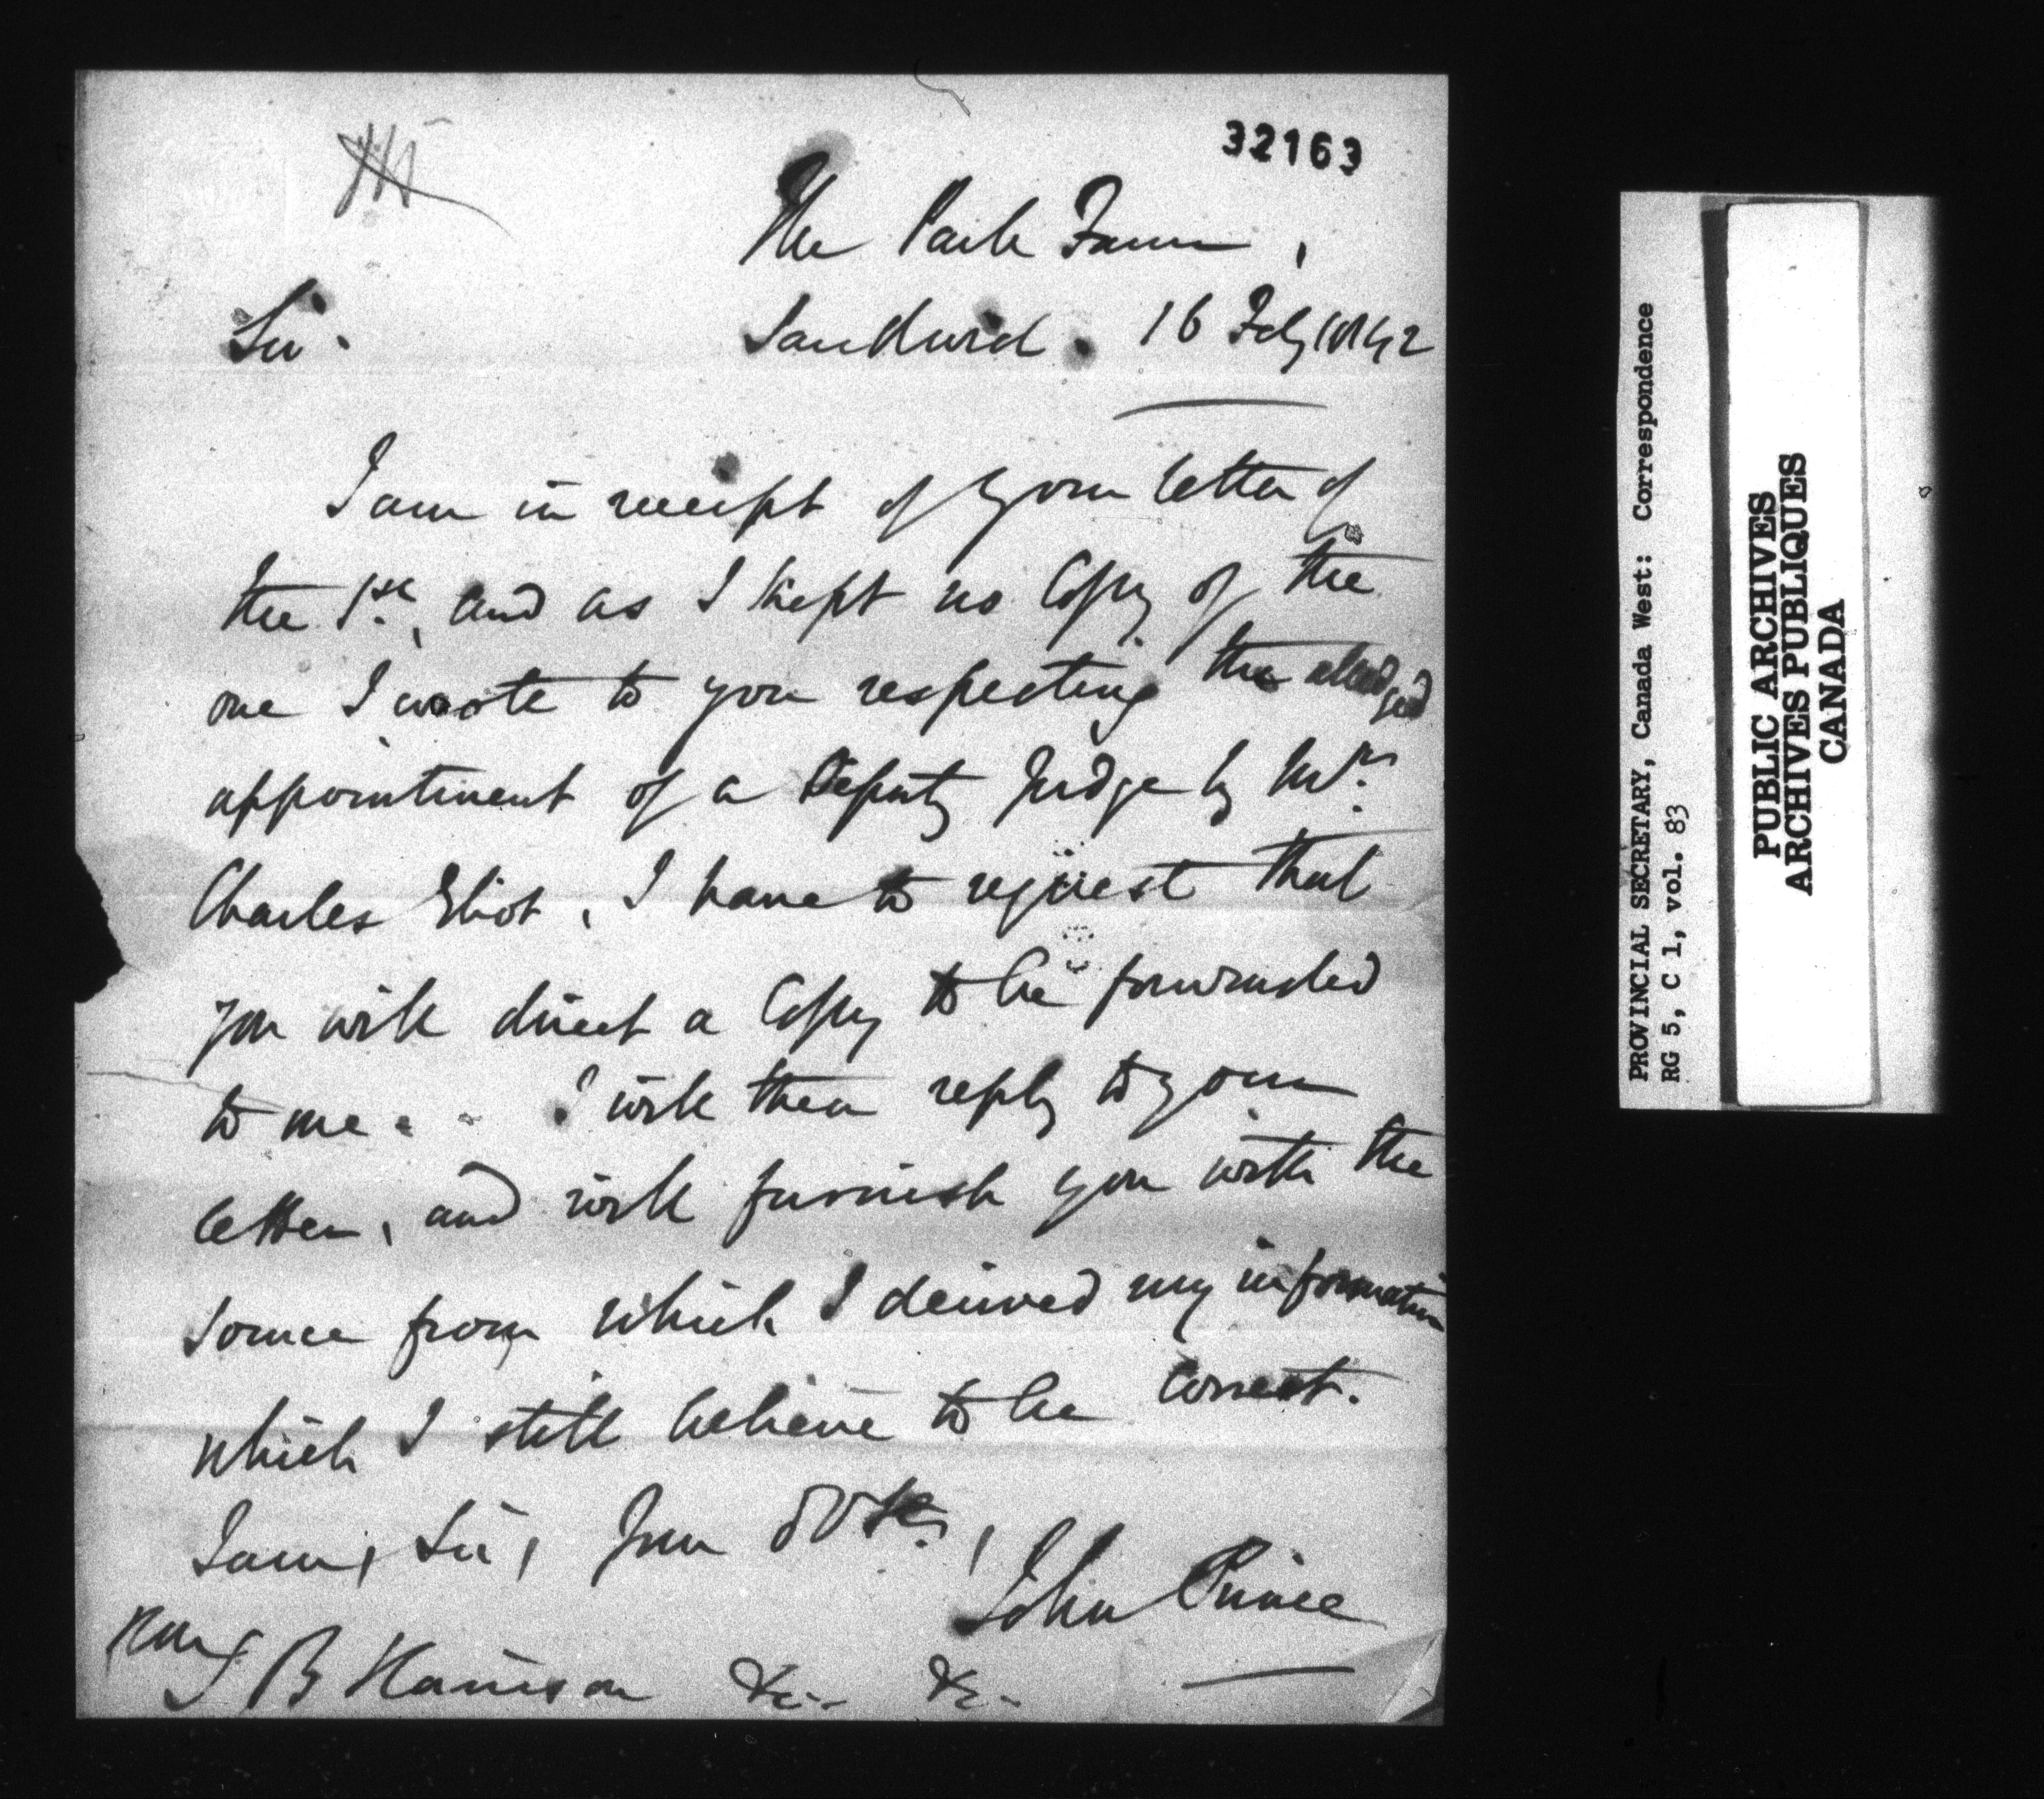 32163
The Park Farm,
Sandwich. 16 Feby 1842
Sir.
I am in receipt of your letter of
the 1st, and as I kept no Copy of the
one I wrote to you respecting the alledged
appointment of a Deputy Judge by Mr.
Charles Eliot, I have to request that
you will direct a Copy to be forwarded
to me. I will then reply to your
letter, and will furnish you with the
source from which I derived my information
which I still believe to be correct.
I am, Sir, Your
John Prince
S B Harrison &c. &c.
PROVINCIAL SECRETARY, Canada West: Correspondence
RG 5, C 1, vol. 83
PUBLIC ARCHIVES
ARCHIVES PUBLIQUES
CANADA